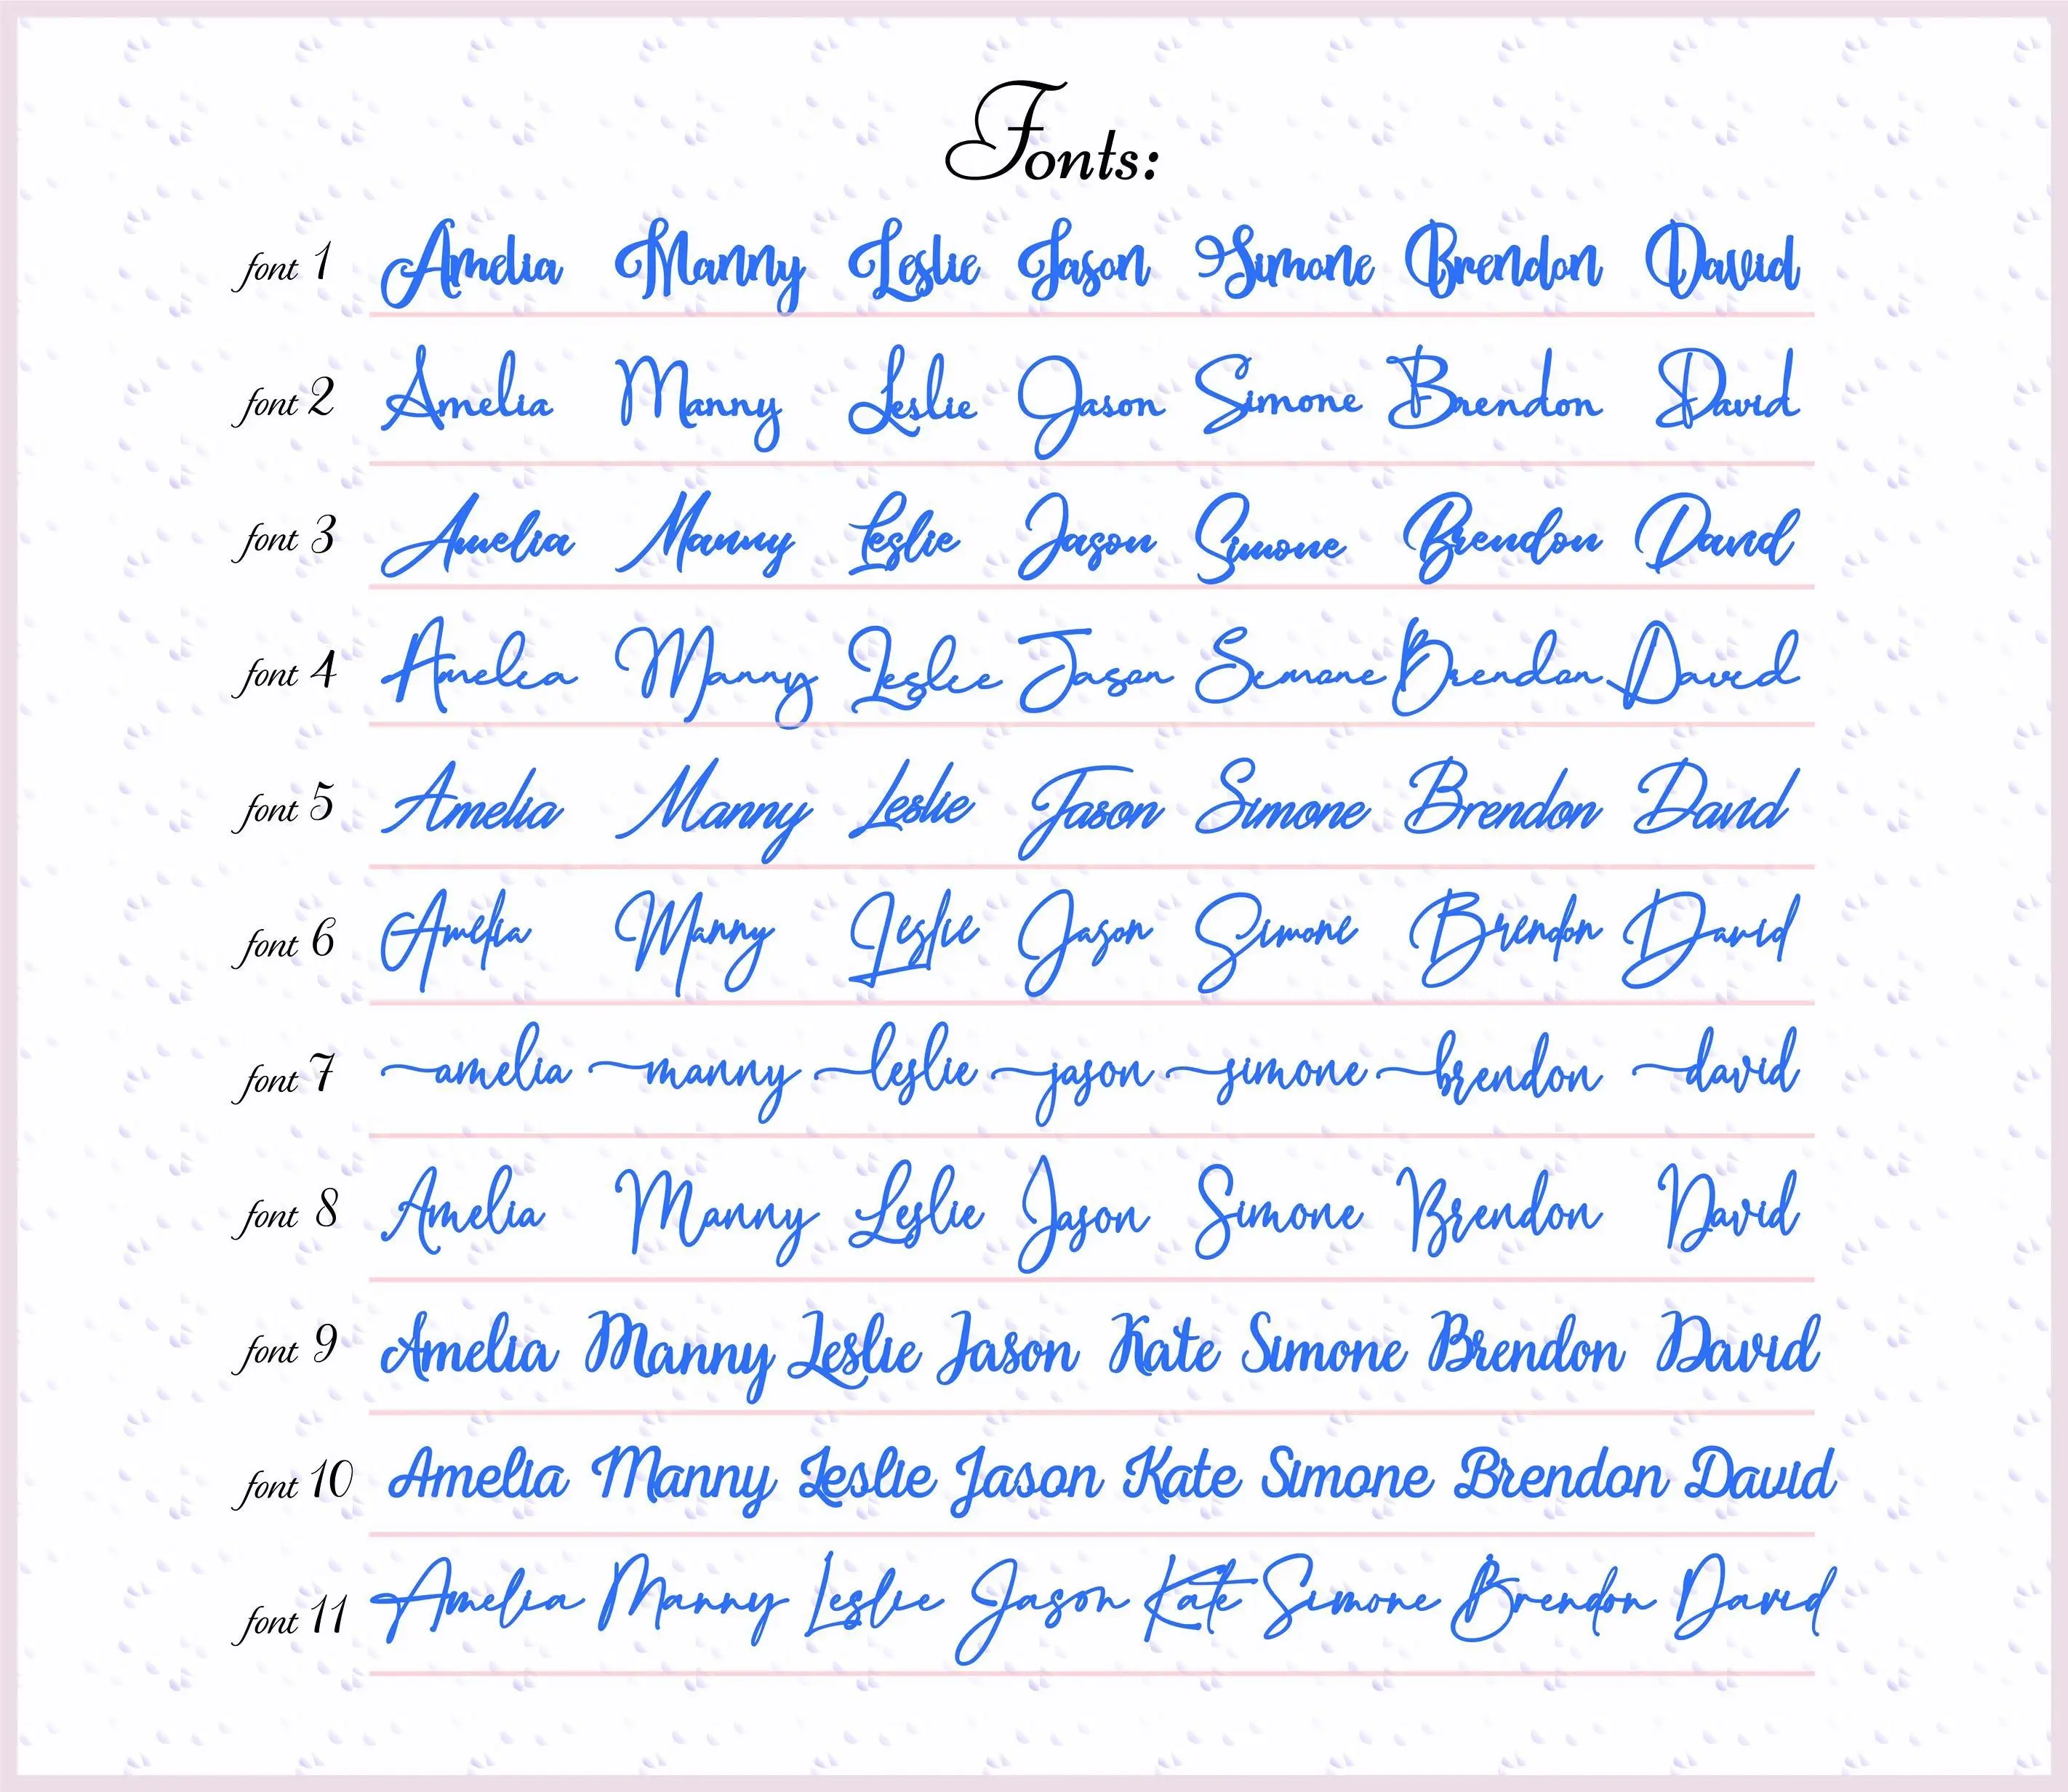 Fonts:
font 1 Amelia Manny Leslie Jason Simone Brendon David
font 2 Amelia Manny Leslie Jason Simone Brendon David
font 3 Amelia Manny Leslie Jason Simone Brendon David
font 4 Amelia Manny Leslie Jason Simone Brendon David
font 5 Amelia Manny Leslie Jason Simone Brendon David
font 6 Amelia Manny Leslie Jason Simone Brendon David
font 7 amelia manny leslie jason simone brendon david
font 8 Amelia Manny Leslie Jason Simone Brendon David
font 9 Amelia Manny Leslie Jason Kate Simone Brendon David
font 10 Amelia Manny Leslie Jason Kate Simone Brendon David
font 11 Amelia Manny Leslie Jason Kate Simone Brendon David